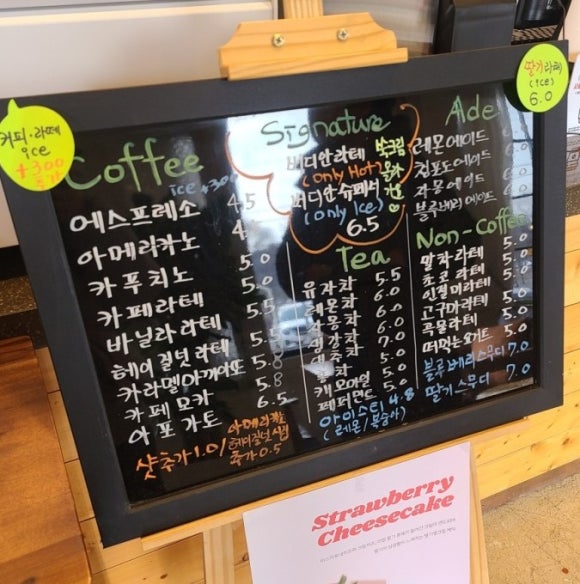 커피·라떼
ice
+300
추가
딸기라떼
(ice)
6.0
Coffee
ice +300
에스프레소 4.5
아메리카노
카푸치노 5.0
카페라테 5.0
바닐라 라테 5.5
헤이즐넛 라테 5.5
카라멜마끼아또 5.8
카페 모카 5.8
아포가토 6.5
샷추가 1.0/
아메리카노
헤이즐넛 시럽
추가 0.5
Signature
버디안라떼
(Only Hot)
버디안슈페너
(Only Ice)
6.5
쑥크림
Tea
유자차 5.5
레몬차 6.0
자몽차 6.0
생강차 6.0
대추차 7.0
5.0
캐모마일 5.0
페퍼민트 5.0
아이스티 4.8
(레몬/복숭아)
Ade
레몬에이드 6.0
청포도에이드 6.0
자몽에이드 6.0
블루베리에이드 6.0
Non-Coffee
말차라테 5.0
초코라테 5.0
인절미라테 5.0
고구마라테 5.0
곡물라테 5.0
떠먹는요거트 5.0
블루베리스무디 7.0
딸기스무디 7.0
Strawberry
Cheesecake